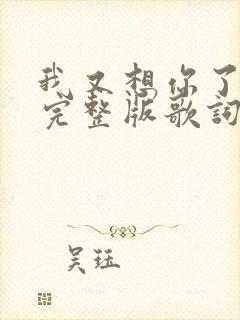 我又想你了
完整版歌詞
吴珏